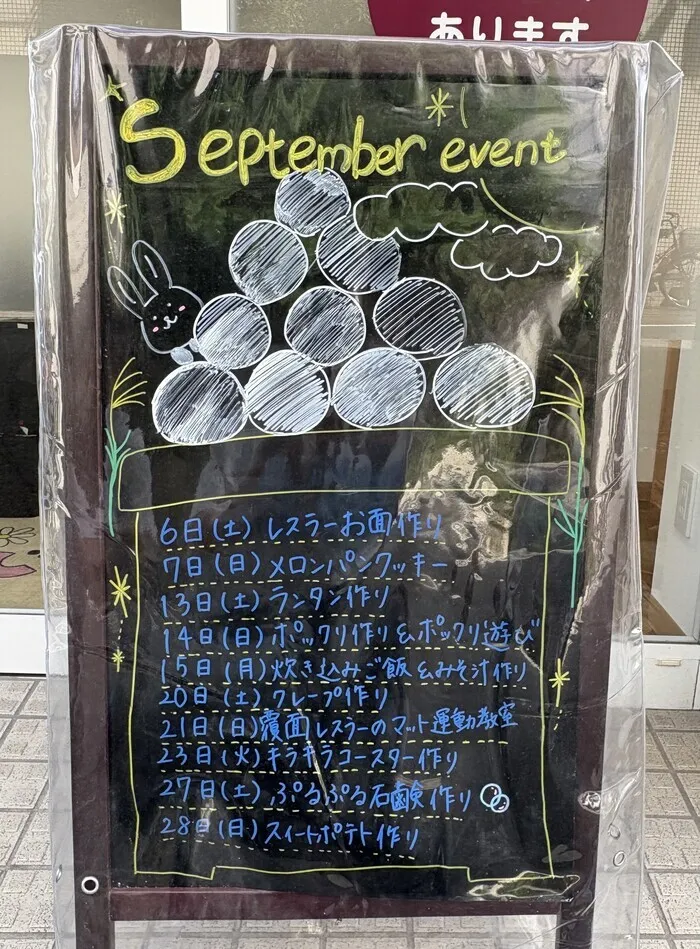 あります
September event
6日(土) レスラーお面作り
7日(日) メロンパンクッキー
13日(土) ランタン作り
14日(日) ポックリ作り&ポックリ遊び
15日(月) 炊き込みご飯&みそ汁作り
20日(土) クレープ作り
21日(日) 覆面レスラーのマット運動教室
23日(火) キラキラコースター作り
27日(土) ぷるぷる石鹸作り
28日(日) スイートポテト作り